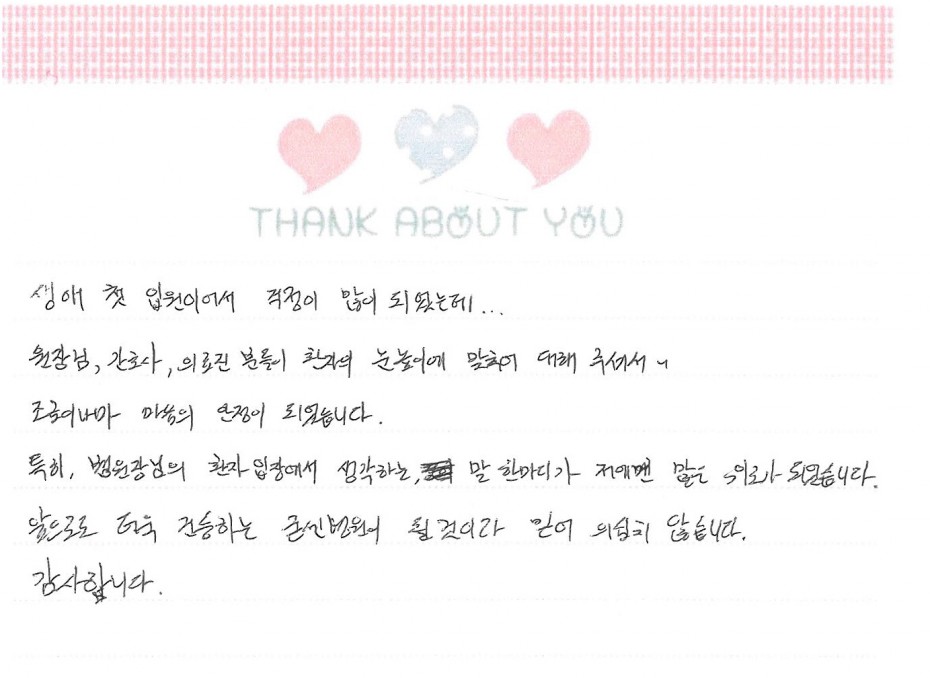 THANK ABOUT YOU
생애 첫 입원이어서 걱정이 많이 되었는데...
원장님, 간호사, 의료진 분들이 환자의 눈높이에 맞추어 대해 주셔서
조금이나마 마음의 안정이 되었습니다.
특히, 병원장님의 환자입장에서 생각하는, 말 한마디가 저에겐 많은 위로가 되었습니다.
앞으로도 더욱 건승하는 병원이 될 것이라 믿어 의심치 않습니다.
감사합니다.